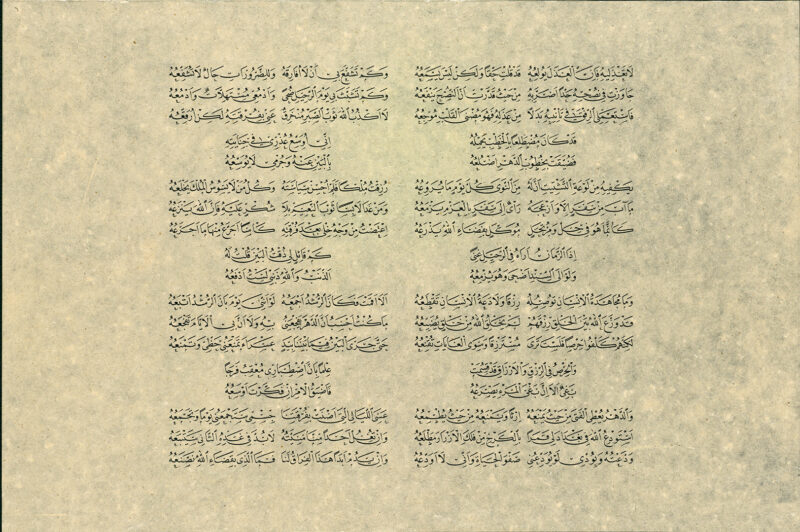 لا تعذليه فإن العذل يولعه قد قلت حقا ولكن ليس يسمعه
جاوزت في نصحه حدا أضر به من حيث قدرت أن النصح ينفعه
فاستعملي الرفق في تأنيبه بدلا من عذله فهو مضنى القلب موجعه
قد كان مضطلعا بالخطب يحمله
فضيقت بخطوب الدهر أضلعه
يكفيه من لوعة التشتيت أن له من النوى كل يوم ما يروعه
ما آب من سفر إلا وأزعجه رأي إلى سفر بالعزم يزمعه
كأنما هو في حل ومرتحل موكل بقضاء الله يذرعه
إذا الزمان أراه في الرحيل غنى
ولو إلى السند أضحى وهو يزمعه
وما مجاهدة الإنسان توصله رزقا ولا دعة الإنسان تقطعه
قد وزع الله بين الخلق رزقهم لم يخلق الله من خلق يضيعه
لكنهم كلفوا حرصا فلست ترى مسترزقا وسوى الغايات تقنعه
والحرص في الرزق والأرزاق قد قسمت
بغي ألا إن بغي المرء يصرعه
والدهر يعطي الفتى من حيث يمنعه إرثا ويمنعه من حيث يطمعه
أستودع الله في بغداد لي قمرا بالكرخ من فلك الأزرار مطلعه
ودعته وبودي لو يودعني صفو الحياة وأني لا أودعه
وكم تشفع بي أن لا أفارقه وللضرورات حال لا تشفعه
وكم تشبث بي يوم الرحيل ضحى وأدمعي مستهلات وأدمعه
لا أكذب الله ثوب الصبر منخرق عني بفرقته لكن أرقعه
إني أوسع عذري في جنايته
بالبين عنه وجرمي لا يوسعه
رزقت ملكا فلم أحسن سياسته وكل من لا يسوس الملك يخلعه
ومن غدا لابسا ثوب النعيم بلا شكر عليه فإن الله ينزعه
اعتضت من وجه خلي بعد فرقته كأسا أجرع منها ما أجرعه
كم قائل لي ذقت البين قلت له
الذنب والله ذنبي لست أدفعه
ألا أقمت فكان الرشد أجمعه لو أنني يوم بان الرشد أتبعه
ما كنت أحسب أن الدهر يفجعني به ولا أن بي الأيام تفجعه
حتى جرى البين فيما بيننا بيد عسراء تمنعني حظي وتمنعه
علما بأن اصطباري معقب فرجا
فأضيق الأمر إن فكرت أوسعه
عسى الليالي التي أضنت بفرقتنا جسمي ستجمعني يوما وتجمعه
وإن تغل أحدا منا منيته لا بد في غده الثاني سيتبعه
وإن يدم أبدا هذا الفراق لنا فما الذي بقضاء الله نصنعه